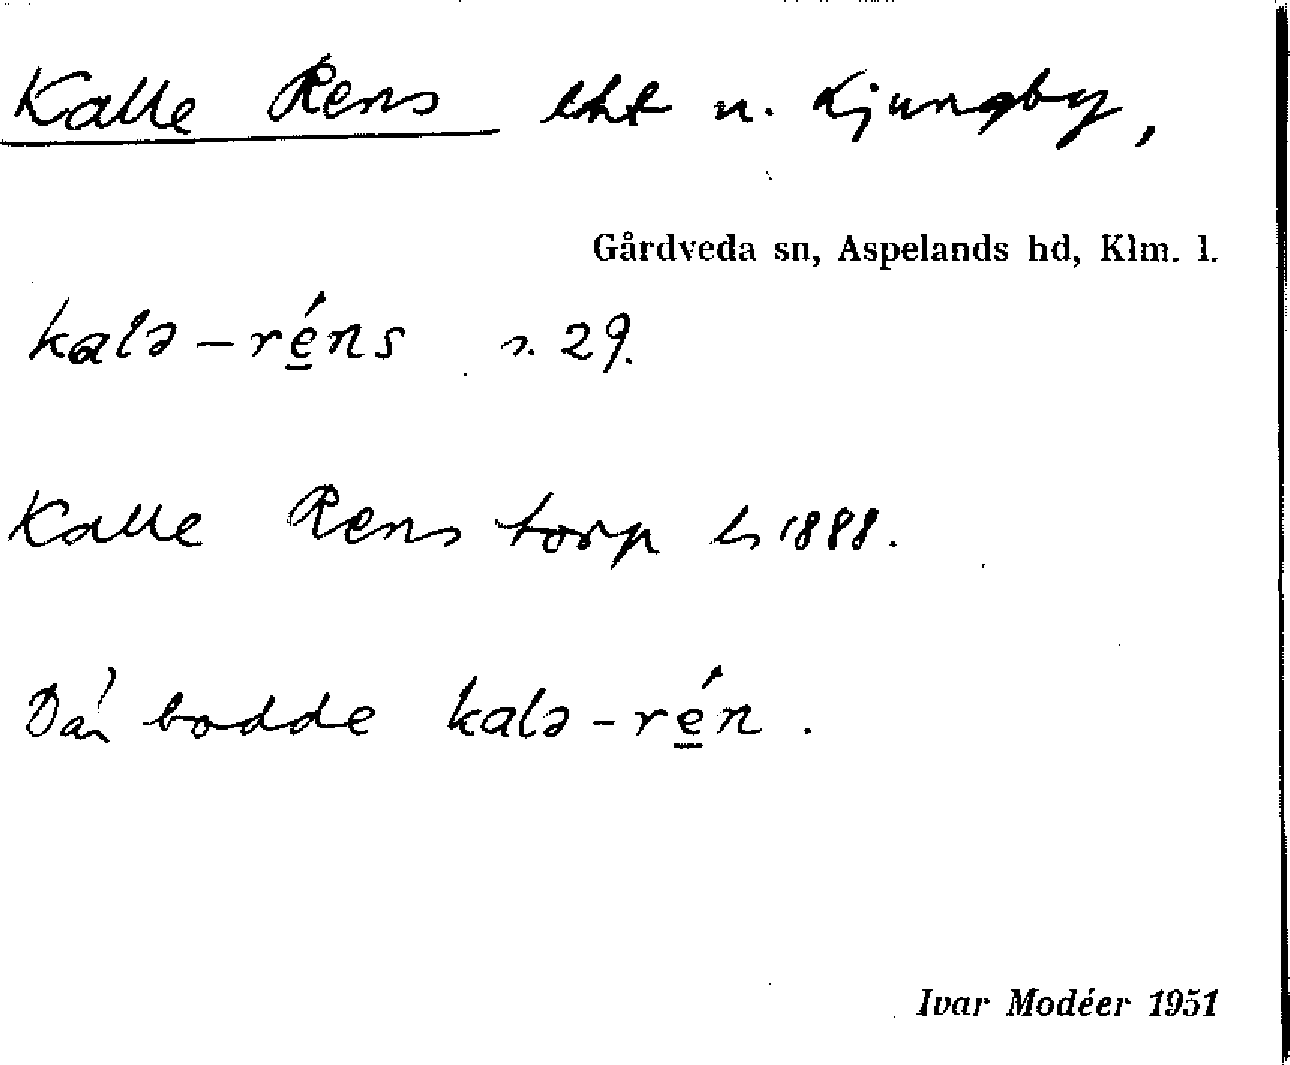 Kalle Rens lht u. Ljungby,
Gårdveda sn, Aspelands hd, Klm. l.
kalə-réns s. 29.
Kalle Rens torp 1888.
Där bodde kalə-rén.
Ivar Modéer 1951